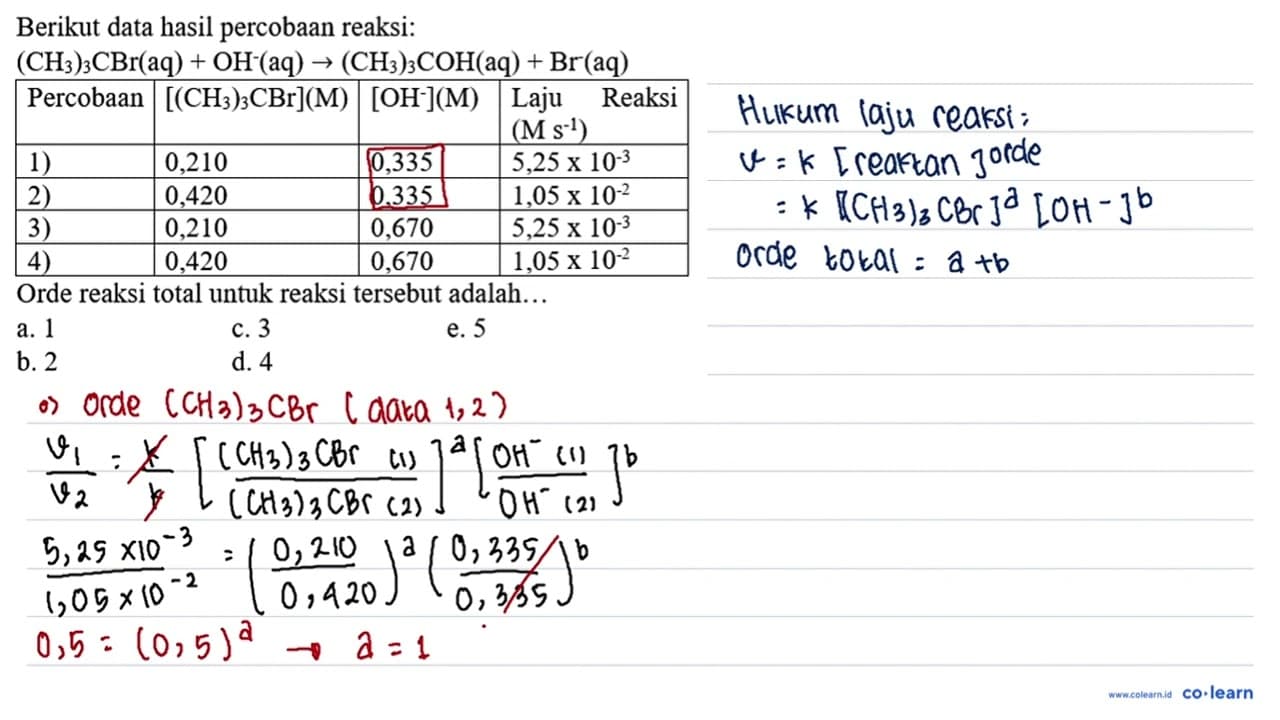 Berikut data hasil percobaan reaksi:
(CH₃)₃CBr(aq) + OH⁻(aq) → (CH₃)₃COH(aq) + Br⁻(aq)
Percobaan [(CH₃)₃CBr](M) [OH⁻](M) Laju Reaksi (M s⁻¹)
1) 0,210 0,335 5,25 x 10⁻³
2) 0,420 0,335 1,05 x 10⁻²
3) 0,210 0,670 5,25 x 10⁻³
4) 0,420 0,670 1,05 x 10⁻²
Orde reaksi total untuk reaksi tersebut adalah…
a. 1 c. 3 e. 5
b. 2 d. 4
Hukum laju reaksi:
v = k [reaktan]^orde
= k [(CH3)3CBr]^a [OH-]^b
Orde total = a+b
•) Orde (CH3)3CBr (data 1,2)
v₁/v₂ = k/k [(CH3)3CBr (1)/(CH3)3CBr (2)]^a [OH⁻ (1)/OH⁻ (2)]^b
5,25 x10⁻³/1,05 x 10⁻² = (0,210/0,420)^a (0,335/0,335)^b
0,5 = (0,5)^a → a = 1
www.colearn.id co·learn